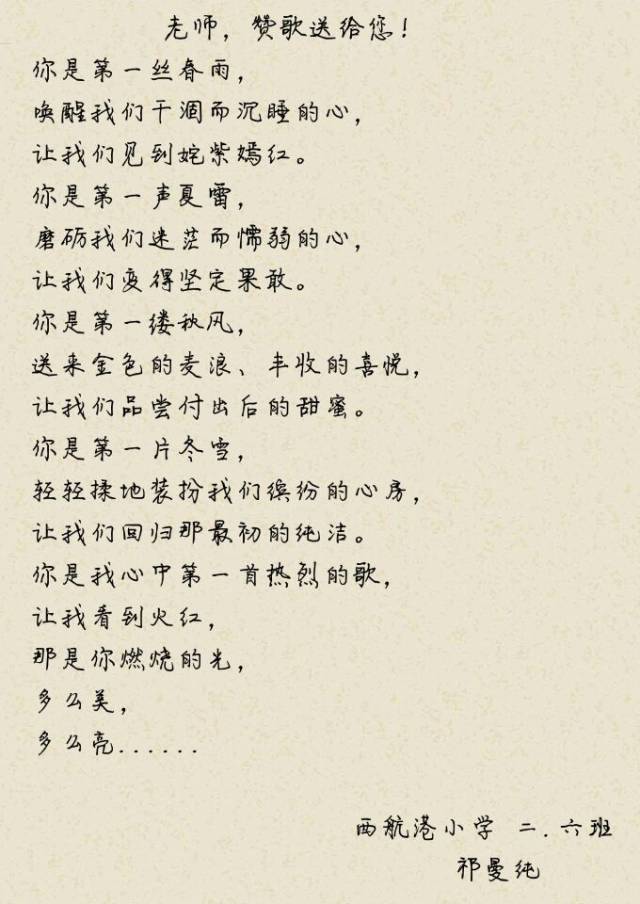 老师，赞歌送给您！
你是第一丝春雨，
唤醒我们干涸而沉睡的心，
让我们见到姹紫嫣红。
你是第一声夏雷，
磨砺我们迷茫而懦弱的心，
让我们变得坚定果敢。
你是第一缕秋风，
送来金色的麦浪、丰收的喜悦，
让我们品尝付出后的甜蜜。
你是第一片冬雪，
轻轻揉地装扮我们缤纷的心房，
让我们回归那最初的纯洁。
你是我心中第一首热烈的歌，
让我看到火红，
那是你燃烧的光，
多么美，
多么亮......
西航港小学 二.六班
祁曼纯